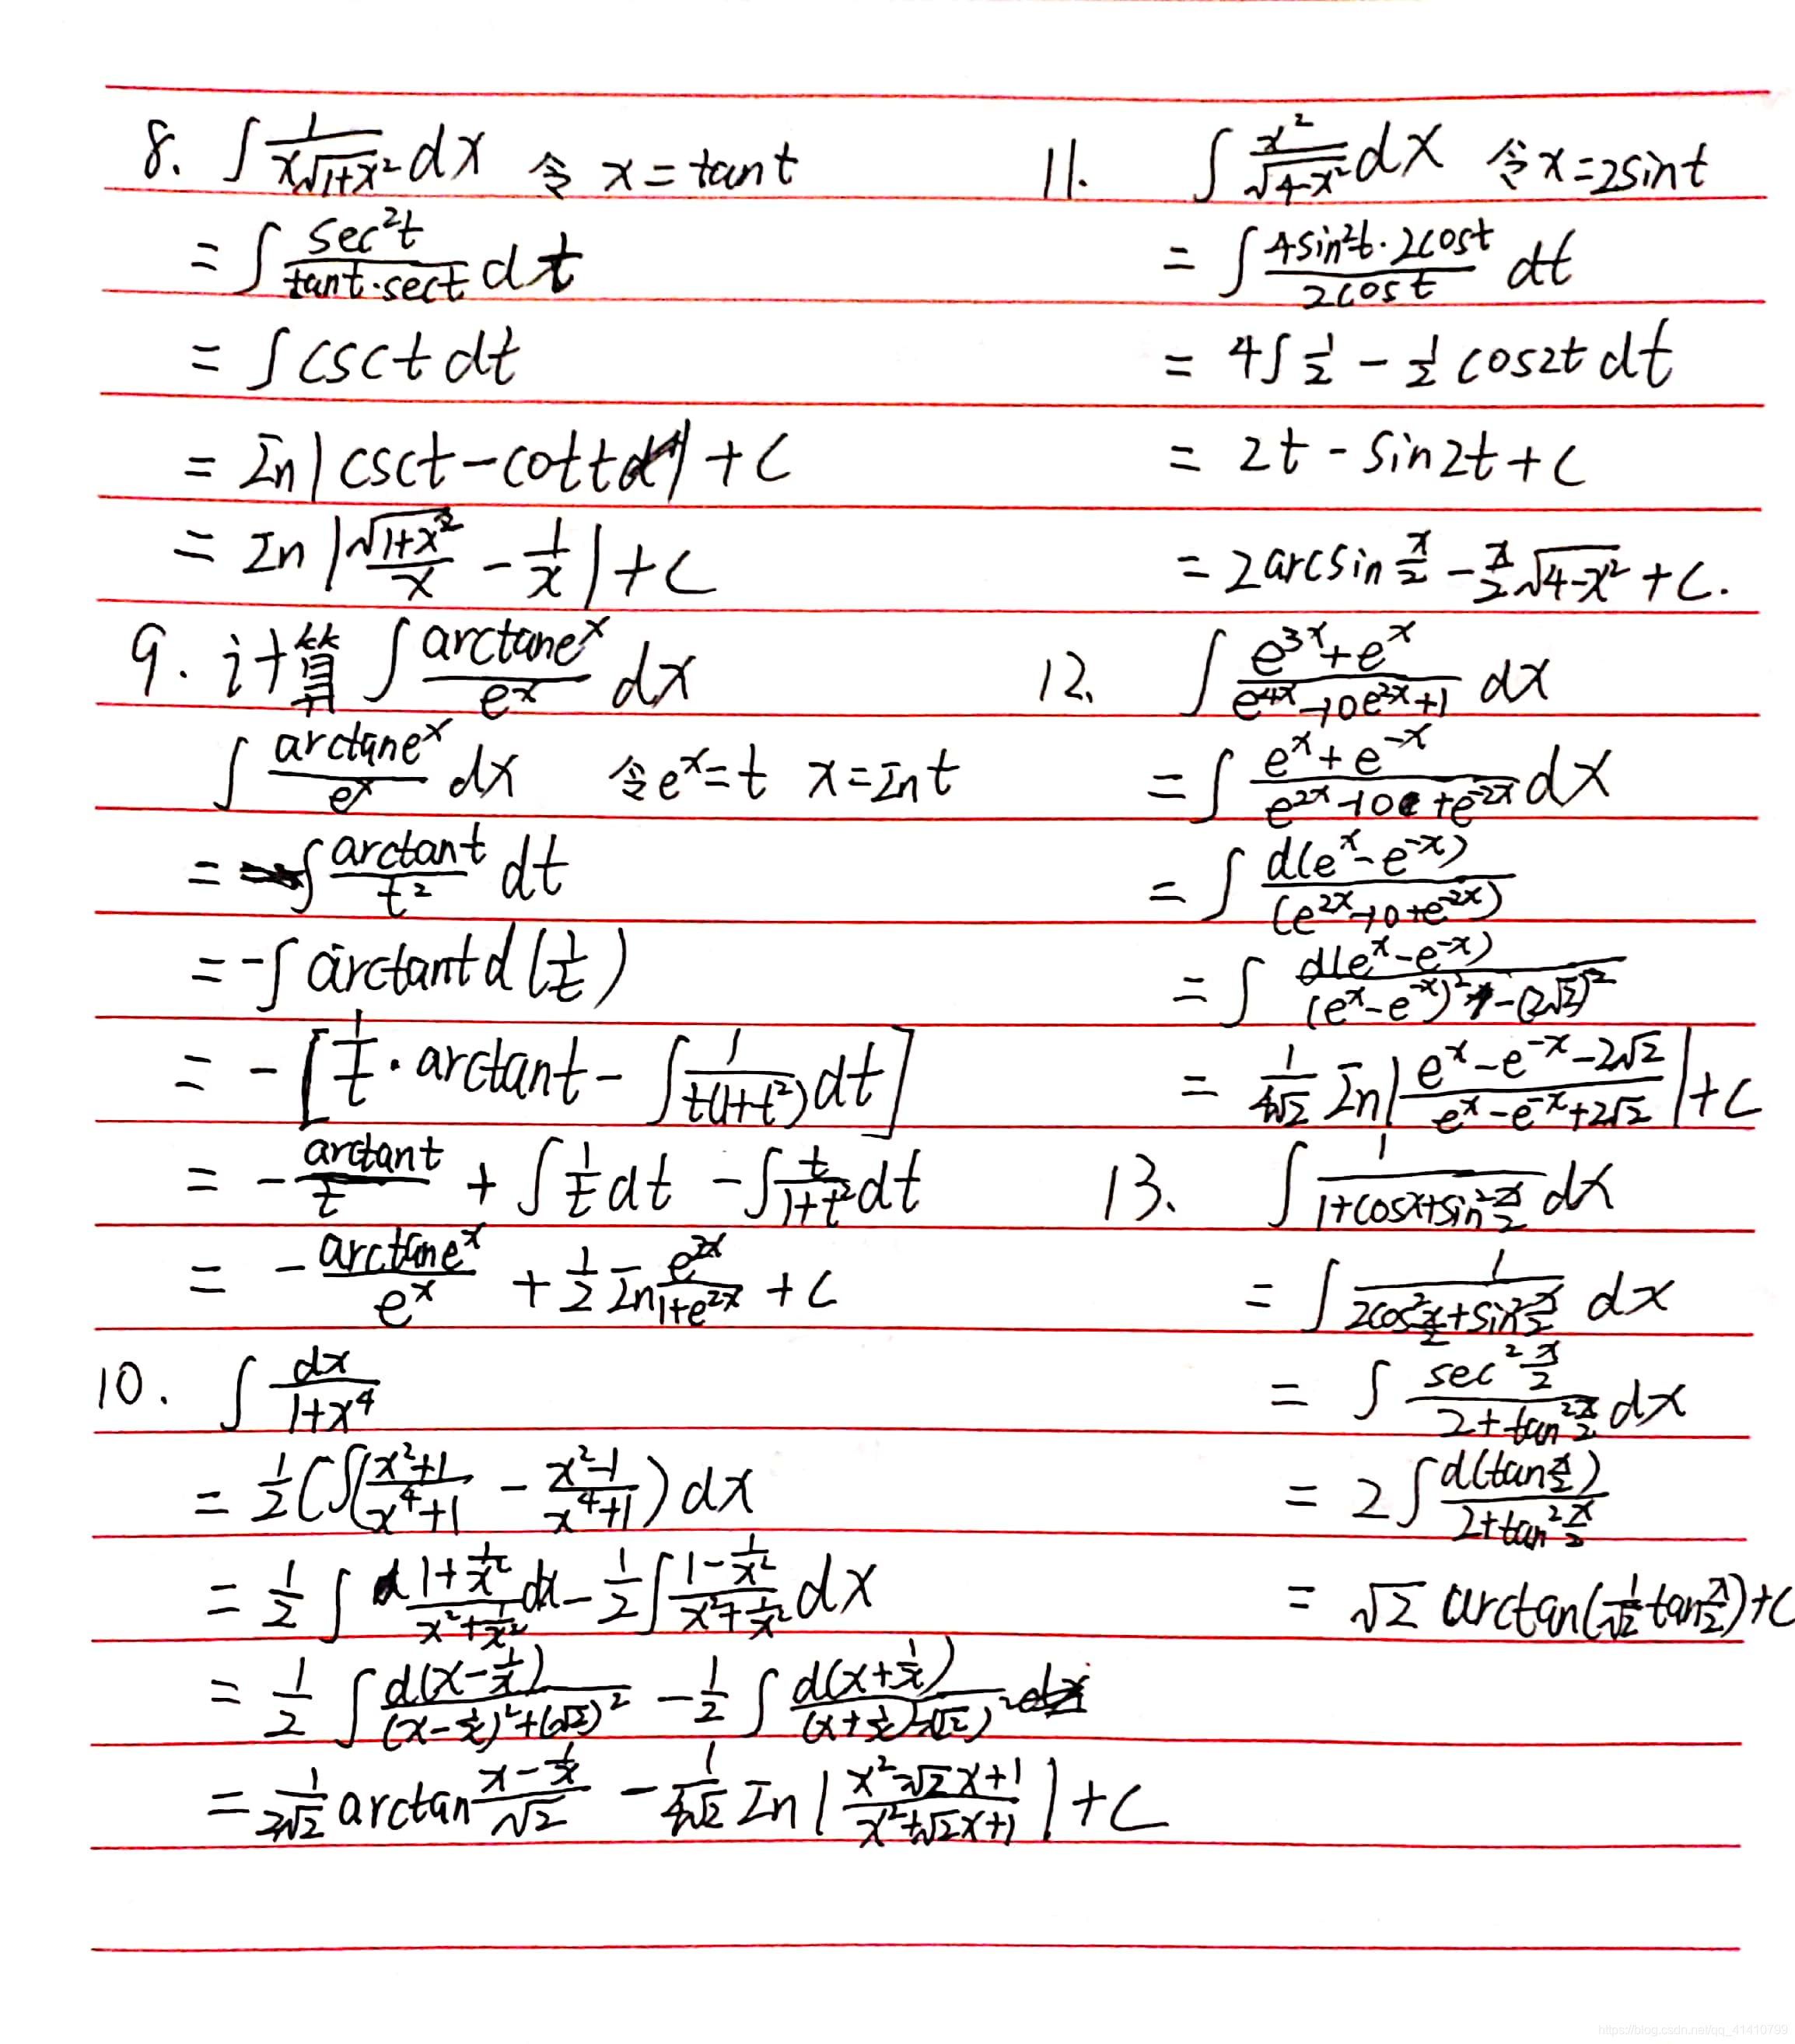 8. ∫ 1/(x√(1+x²)) dx 令 x = tant
= ∫ sec²t/(tant·sect) dt
= ∫ csct dt
= ln|csct - cott| + C
= ln|√(1+x²)/x - 1/x| + C
9. 计算 ∫ arctane^x/e^x dx
∫ arctane^x/e^x dx 令e^x = t x = lnt
= ∫ arctant/t² dt
= -∫ arctant d(1/t)
= -[1/t · arctant - ∫ 1/(t(1+t²)) dt]
= -arctant/t + ∫ 1/t dt - ∫ t/(1+t²) dt
= -arctane^x/e^x + 1/2 ln e^(2x)/(1+e^(2x)) + C
10. ∫ dx/(1+x⁴)
= 1/2 (∫((x²+1)/(x⁴+1) - (x²-1)/(x⁴+1)) dx
= 1/2 ∫ (1+1/x²)/(x²+1/x²) dx - 1/2 ∫ (1-1/x²)/(x²+1/x²) dx
= 1/2 ∫ d(x-1/x)/((x-1/x)²+(√2)²) - 1/2 ∫ d(x+1/x)/((x+1/x)²-(√2)²)
= 1/(2√2) arctan (x-1/x)/√2 - 1/(4√2) ln|(x²-√2x+1)/(x²+√2x+1)| + C
11. ∫ x²/√(4-x²) dx 令x = 2sint
= ∫ 4sin²t·2cost/(2cost) dt
= 4∫ 1/2 - 1/2 cos2t dt
= 2t - sin2t + C
= 2arcsin x/2 - x/2 √(4-x²) + C.
12. ∫ (e^(3x)+e^x)/(e^(4x)-10e^(2x)+1) dx
= ∫ (e^x+e^(-x))/(e^(2x)-10+e^(-2x)) dx
= ∫ d(e^x-e^(-x))/(e^(2x)-10+e^(-2x))
= ∫ d(e^x-e^(-x))/((e^x-e^(-x))²-(2√2)²)
= 1/(4√2) ln|(e^x-e^(-x)-2√2)/(e^x-e^(-x)+2√2)| + C
13. ∫ 1/(1+cosx+sin² x/2) dx
= ∫ 1/(2cos² x/2+sin² x/2) dx
= ∫ sec² x/2/(2+tan² x/2) dx
= 2∫ d(tan x/2)/(2+tan² x/2)
= √2 arctan(1/√2 tan x/2) + C
https://blog.csdn.net/qq_41410799